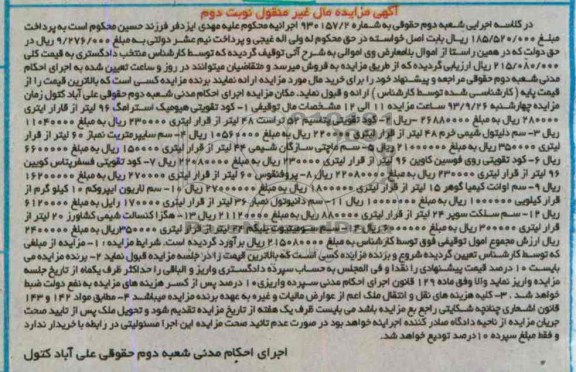 آگهی مزایده مال غیر منقول نوبت دوم
در کلاسه اجرایی شعبه دوم حقوقی به شماره ۹۳۰۱۵۷/۲ اجرائیه محکوم علیه مهدی ایزدفر فرزند حسین محکوم است به پرداخت
مبلغ ۱۸۵/۵۲۰/۰۰۰ ریال بابت اصل خواسته در حق محکوم له ولی اله غیجی و پرداخت نیم عشر دولتی به مبلغ ۹/۲۷۶/۰۰۰ ریال در
حق دولت که در همین راستا از اموال بلامعارض وی اموالی به شرح آتی توقیف گردیده که توسط کارشناس منتخب دادگستری به قیمت کلی
۲۱۵/۰۸۰/۰۰۰ ریال ارزیابی گردیده که از طریق مزایده به فروش میرسد و متقاضیان میتوانند در روز و ساعت تعیین شده به اجرای احکام
مدنی شعبه دوم حقوقی مراجعه و پیشنهاد خود را برای خرید مال مورد مزایده ارائه نمایند برنده مزایده کسی است که بالاترین قیمت را از
قیمت پایه (کارشناسی شده توسط کارشناس) ارائه و قبول نماید. مکان مزایده اجرای احکام مدنی شعبه دوم حقوقی علی آباد کتول زمان
مزایده چهارشنبه ۹۳/۹/۲۶ ساعت مزایده ۱۱ الی ۱۲ مشخصات مال توقیفی ۱- کود تقویتی هیومیک استرامگ ۹۶ لیتر از قرار لیتری
۲۸۰۰۰۰ ریال به مبلغ ۲۶۸۸۰۰۰۰ ریال ۲- کود تقویتی پتاسیم ۵۲ تراست ۴۸ لیتر از قرار لیتری ۲۳۰۰۰۰ ریال به مبلغ ۱۱۰۴۰۰۰۰
ریال ۳- سم دلیتول شیمی خرم ۴۸ لیتر از قرار لیتری ۲۲۰۰۰۰ ریال به مبلغ ۱۰۵۶۰۰۰۰ ریال ۴- سم سایپرمتریت نماز ۶۰ لیتر از قرار
لیتری ۳۵۰۰۰۰ ریال به مبلغ ۲۱۰۰۰۰۰۰ ریال ۵- سم ماچتی سازگان شیمی ۴۴ لیتر از قرار لیتری ۱۵۰۰۰۰ ریال به مبلغ ۶۶۰۰۰۰۰
ریال ۶- کود تقویتی روی فوسین کاوین ۹۶ لیتر از قرار لیتری ۲۳۰۰۰۰ ریال به مبلغ ۲۲۰۸۰۰۰۰ ریال ۷- کود تقویتی فسفرپتاس کوپین
۹۶ لیتر از قرار لیتری ۲۳۰۰۰۰ ریال به مبلغ ۲۲۰۸۰۰۰۰ ریال ۸- پروفنفوس ۶۰ لیتر از قرار لیتری ۲۷۰۰۰۰ ریال به مبلغ ۱۶۲۰۰۰۰۰
ریال ۹- سم اوانت کیمیا گوهر ۱۵ لیتر از قرار لیتری ۱۸۰۰۰۰۰ ریال به مبلغ ۲۷۰۰۰۰۰۰ ریال ۱۰- سم لاریون ایپروکم ۱۰ کیلو گرم از
قرار کیلویی ۱۰۰۰۰۰ ریال به مبلغ ۱۰۰۰۰۰۰ ریال ۱۱- سم دانیوتول نصار ۳۶ لیتر از قرار لیتری ۱۷۰۰۰۰ رایل به مبلغ ۶۱۲۰۰۰۰
ریال ۱۲- سم سلکت سوپر ۲۴ لیتر از قرار لیتری ۸۸۰۰۰۰ ریال به مبلغ ۲۱۱۲۰۰۰۰ ریال ۱۳- هگزاکنسالت شیمی کشاورز ۲۰ لیتر از
قرار لیتری ۳۰۰۰۰۰ ریال به مبلغ ۶۰۰۰۰۰۰ ریال ۱۴- سم سومیتیوت بلیگام ۲۴ لیتر از قرار لیتری ۳۵۰۰۰۰ ریال به مبلغ ۲۴۰۰۰۰۰
ریال ارزش مجموع اموال توقیفی فوق توسط کارشناس به مبلغ ۲۱۵۰۸۰۰۰۰ ریال برآورد گردیده است. شرایط مزایده: ۱- مزایده از مبلغی
که توسط کارشناس تعیین گردیده شروع و برنده مزایده کسی است که بالاترین قیمت را در جلسه مزایده قبول نماید ۲- برنده مزایده می
بایست ۱۰ درصد قیمت پیشنهادی را نقدا و فی المجلس به حساب سپرده دادگستری واریز و الباقی را حداکثر ظرف یکماه از تاریخ جلسه
مزایده واریز نماید والا وفق ماده ۱۲۹ قانون اجرای احکام مدنی سپرده واریزی ۱۰ درصد پس از کسر هزینه های مزایده به نفع دولت ضبط
خواهد شد. ۳- کلیه هزینه های نقل و انتقال ملک اعم از عوارض مالیات و غیره به عهده برنده مزایده میباشد ۴- مطابق مواد ۱۴۲ و ۱۴۳
قانون اشعاری چنانچه شکایتی راجع به مزایده باشد می بایست ظرف یک هفته از تاریخ مزایده تقدیم شود و تحویل ملک پس از تایید صحت
جریان مزایده از ناحیه دادگاه صادر کننده اجرائیه خواهد بود در صورت عدم تائید صحت مزایده این اجرا مسئولیتی در رابطه با خریدار ندارد
و فقط مبلغ سپرده ۱۰درصد تودیع خواهد شد.
اجرای احکام مدنی شعبه دوم حقوقی علی آباد کتول